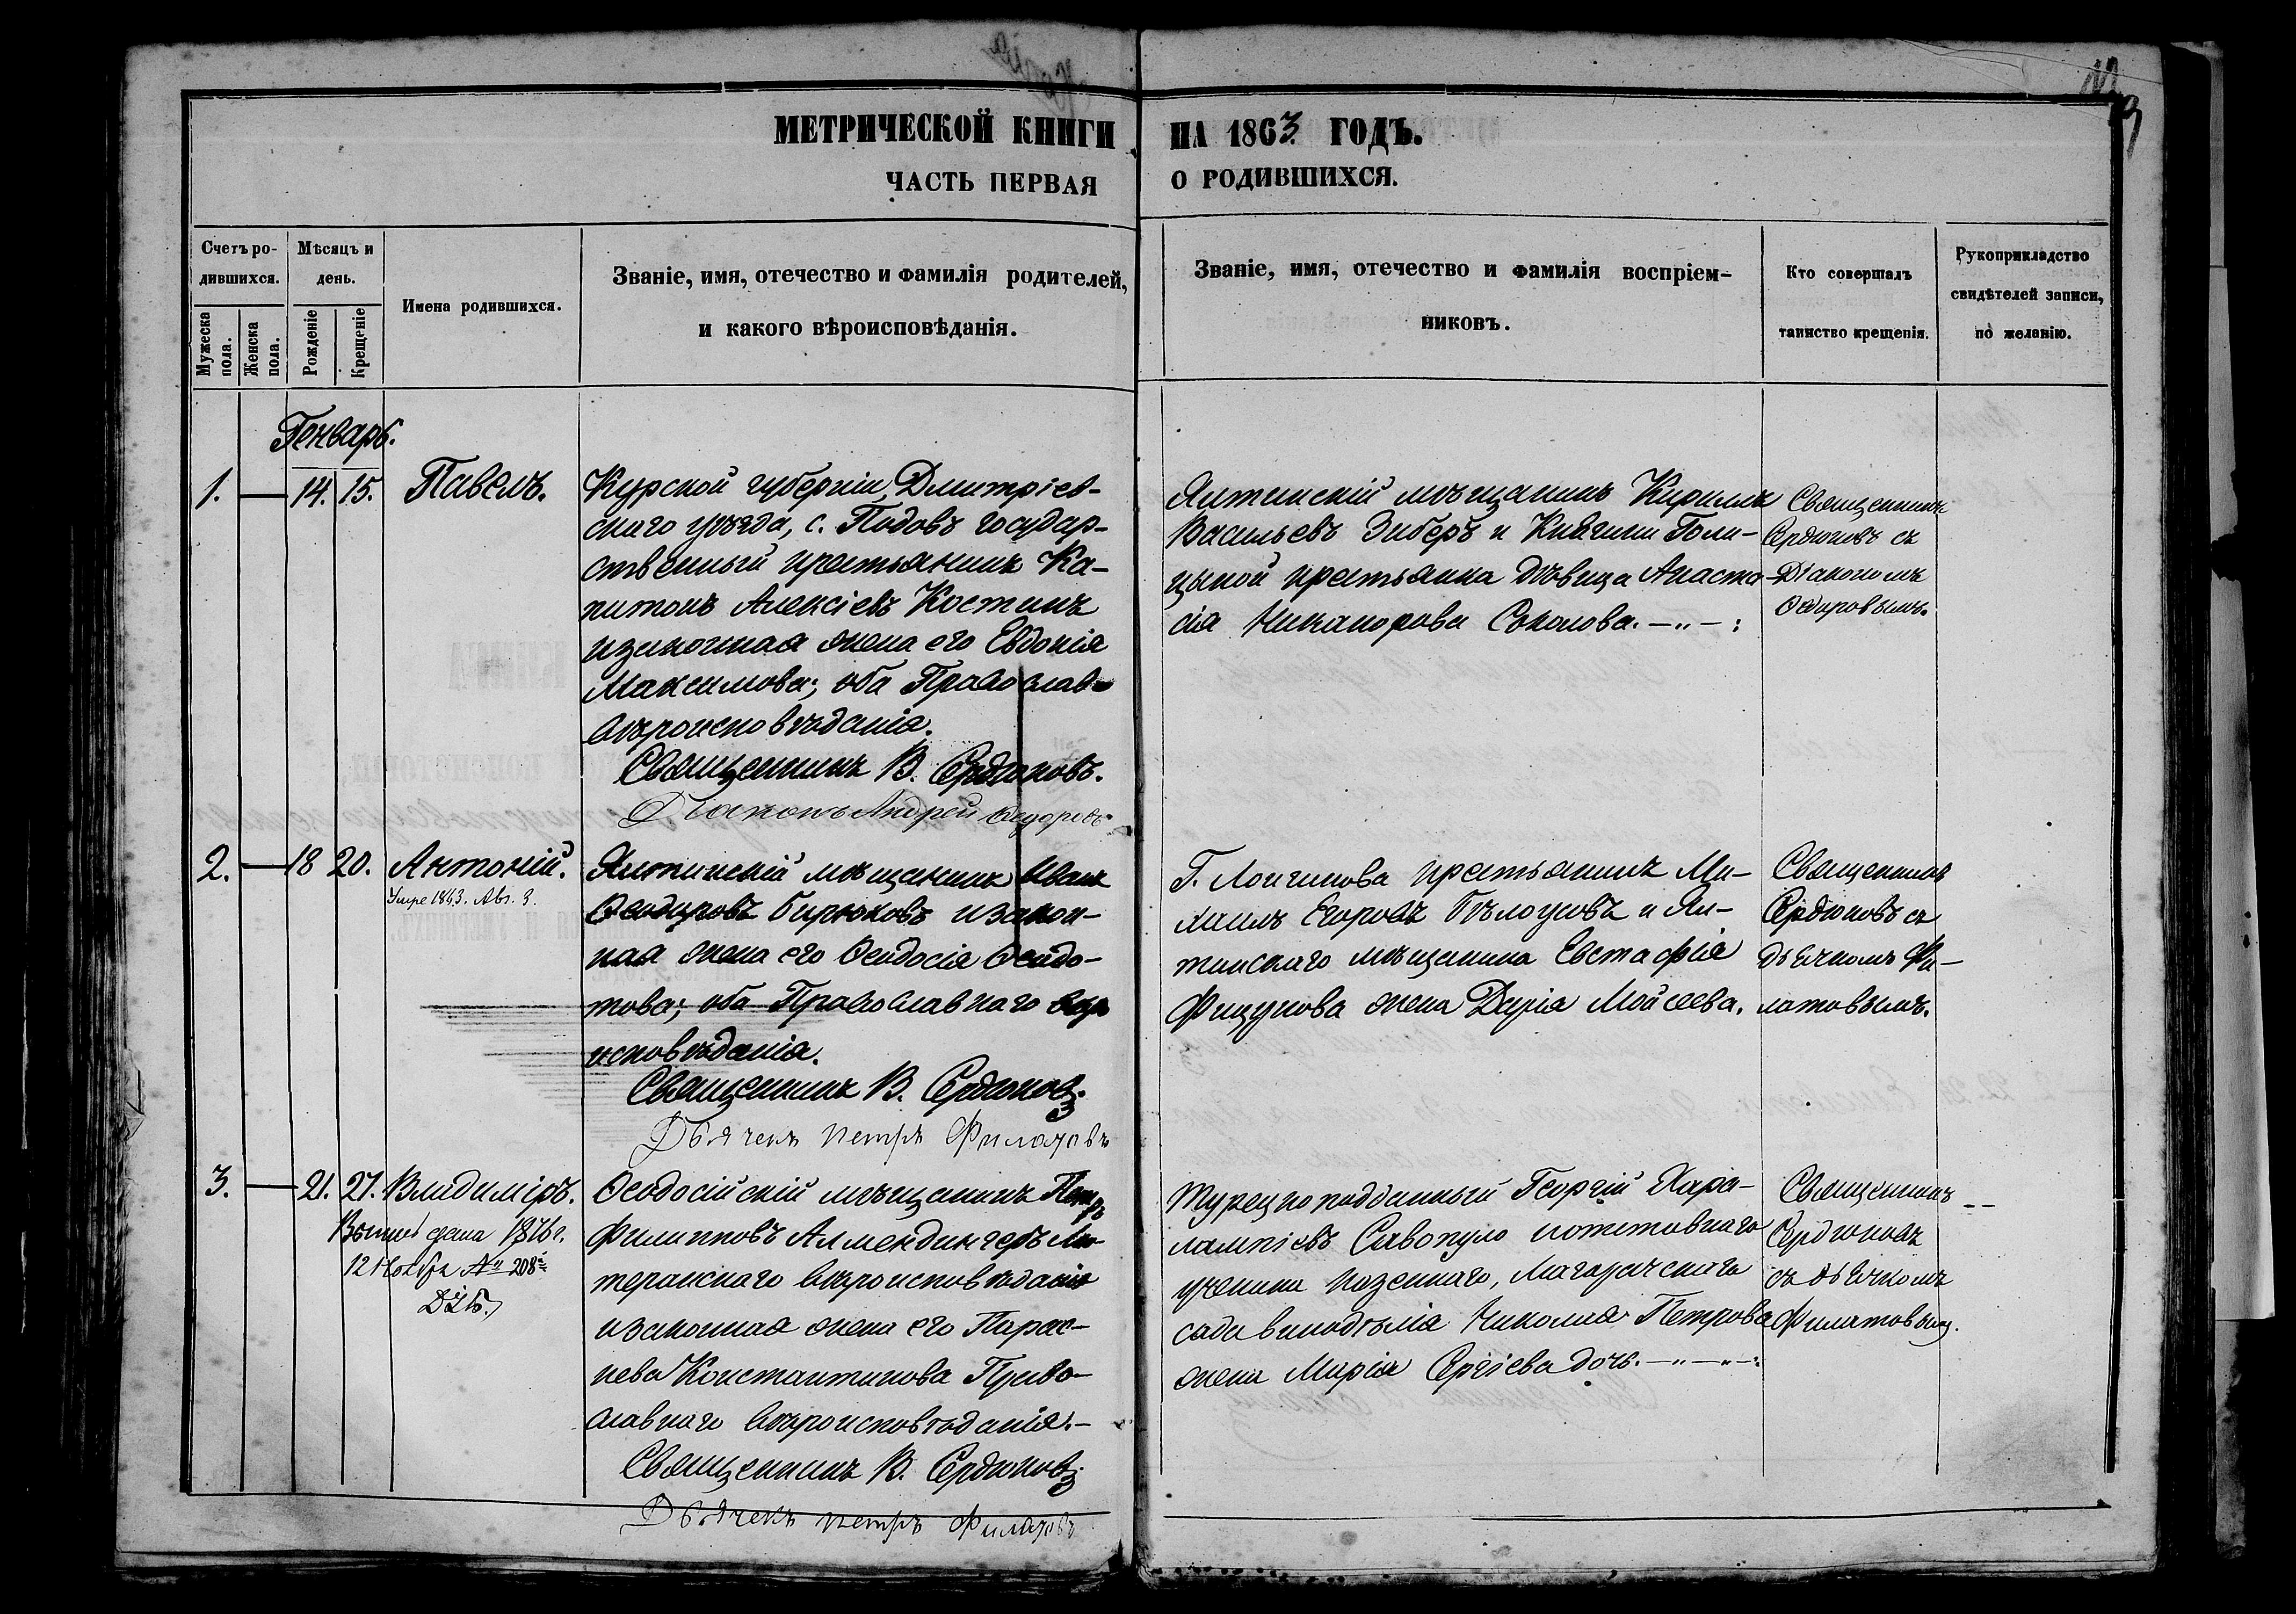 МЕТРИЧЕСКОЙ КНИГИ НА 1863 ГОДЪ.
ЧАСТЬ ПЕРВАЯ О РОДИВШИХСЯ.
Счетъ ро-
дившихся.
Мужеска пола.
Женска пола.
Мѣсяцъ и
день.
Рожденіе
Крещеніе
Имена родившихся.
Званіе, имя, отечество и фамилія родителей,
и какого вѣроисповѣданія.
Званіе, имя, отечество и фамилія воспріем-
никовъ.
Кто совершалъ
таинство крещенія.
Рукоприкладство
свидѣтелей записи,
по желанію.
Генварь.
1. — 14. 15. Павелъ.
Курской губерніи, Дмитріев-
скаго уѣзда, с. Подовъ государ-
ственный крестьянинъ Ка-
питонъ Алексіевъ Костинъ
изаконная жена его Евдокія
Максимова; оба Православ-
вѣроисповѣданія.
Священникъ В. Сердюковъ.
Діаконъ Андрей Ѳедоровъ
Ялтинскій мѣщанинъ Кириллъ
Васильевъ Зиберъ и Княгини Голи-
цыной крестьянка дѣвица Анаста-
сія Никанорова Соколова. —"— :
Священникъ
Сердюковъ съ
Діакономъ
Ѳедоровымъ.
2. — 18 20. Антоній.
Умре 1863. Авг. 3.
Ялтинскій мѣщанинъ Иванъ
Ѳеодоровъ Бирюковъ изакон-
ная жена его Ѳеодосія Ѳеодо-
това; оба Православнаго вѣро
исповѣданія.
Священникъ В. Сердюковъ.
Дьячекъ Петръ Филатовъ
Г. Лонгинова крестьянинъ Ми-
хаилъ Егоровъ Бѣлоусовъ и Ял-
тинскаго мѣщанина Евстафія
Фицукова жена Дарія Мойсеева.
Священникъ
Сердюковъ съ
дьячкомъ Фи-
латовымъ.
3. — 21. 27. Владиміръ.
дана 1876 г.
12 Ноября № 208
Ѳеодосійскій мѣщанинъ Петръ
Филипповъ Алмендингеръ Лю-
теранскаго вѣроисповѣданія
изаконная жена его Парас-
кева Константинова Право-
славнаго вѣроисповѣданія.—
Священникъ В. Сердюковъ
Дьячекъ Петръ Филатовъ
Турецкоподданный Георгій Хара-
лампіевъ Савопуло и
ученика казеннаго, Магарачскаго
сада винодѣлія Николая Петрова
жена Марія Сергіева дочь. —"—"—:
Священникъ
Сердюковъ
съ дьячкомъ
Филатовымъ.